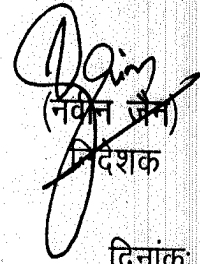 (नवीन जैन)
निदेशक
दिनांक: